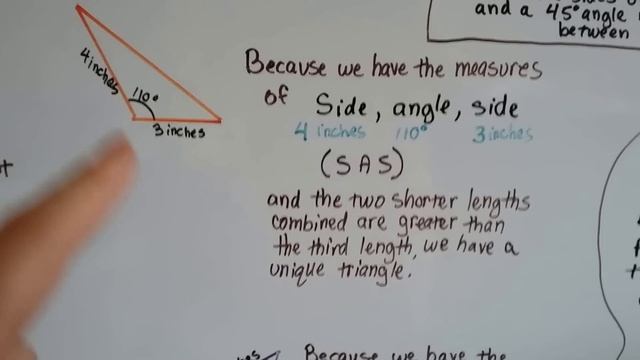 and a 45° angle
between
4 inches
110°
3 inches
Because we have the measures
of Side, angle, side
4 inches 110° 3 inches
(SAS)
and the two shorter lengths
combined are greater than
the third length, we have a
unique triangle.
Because we have the